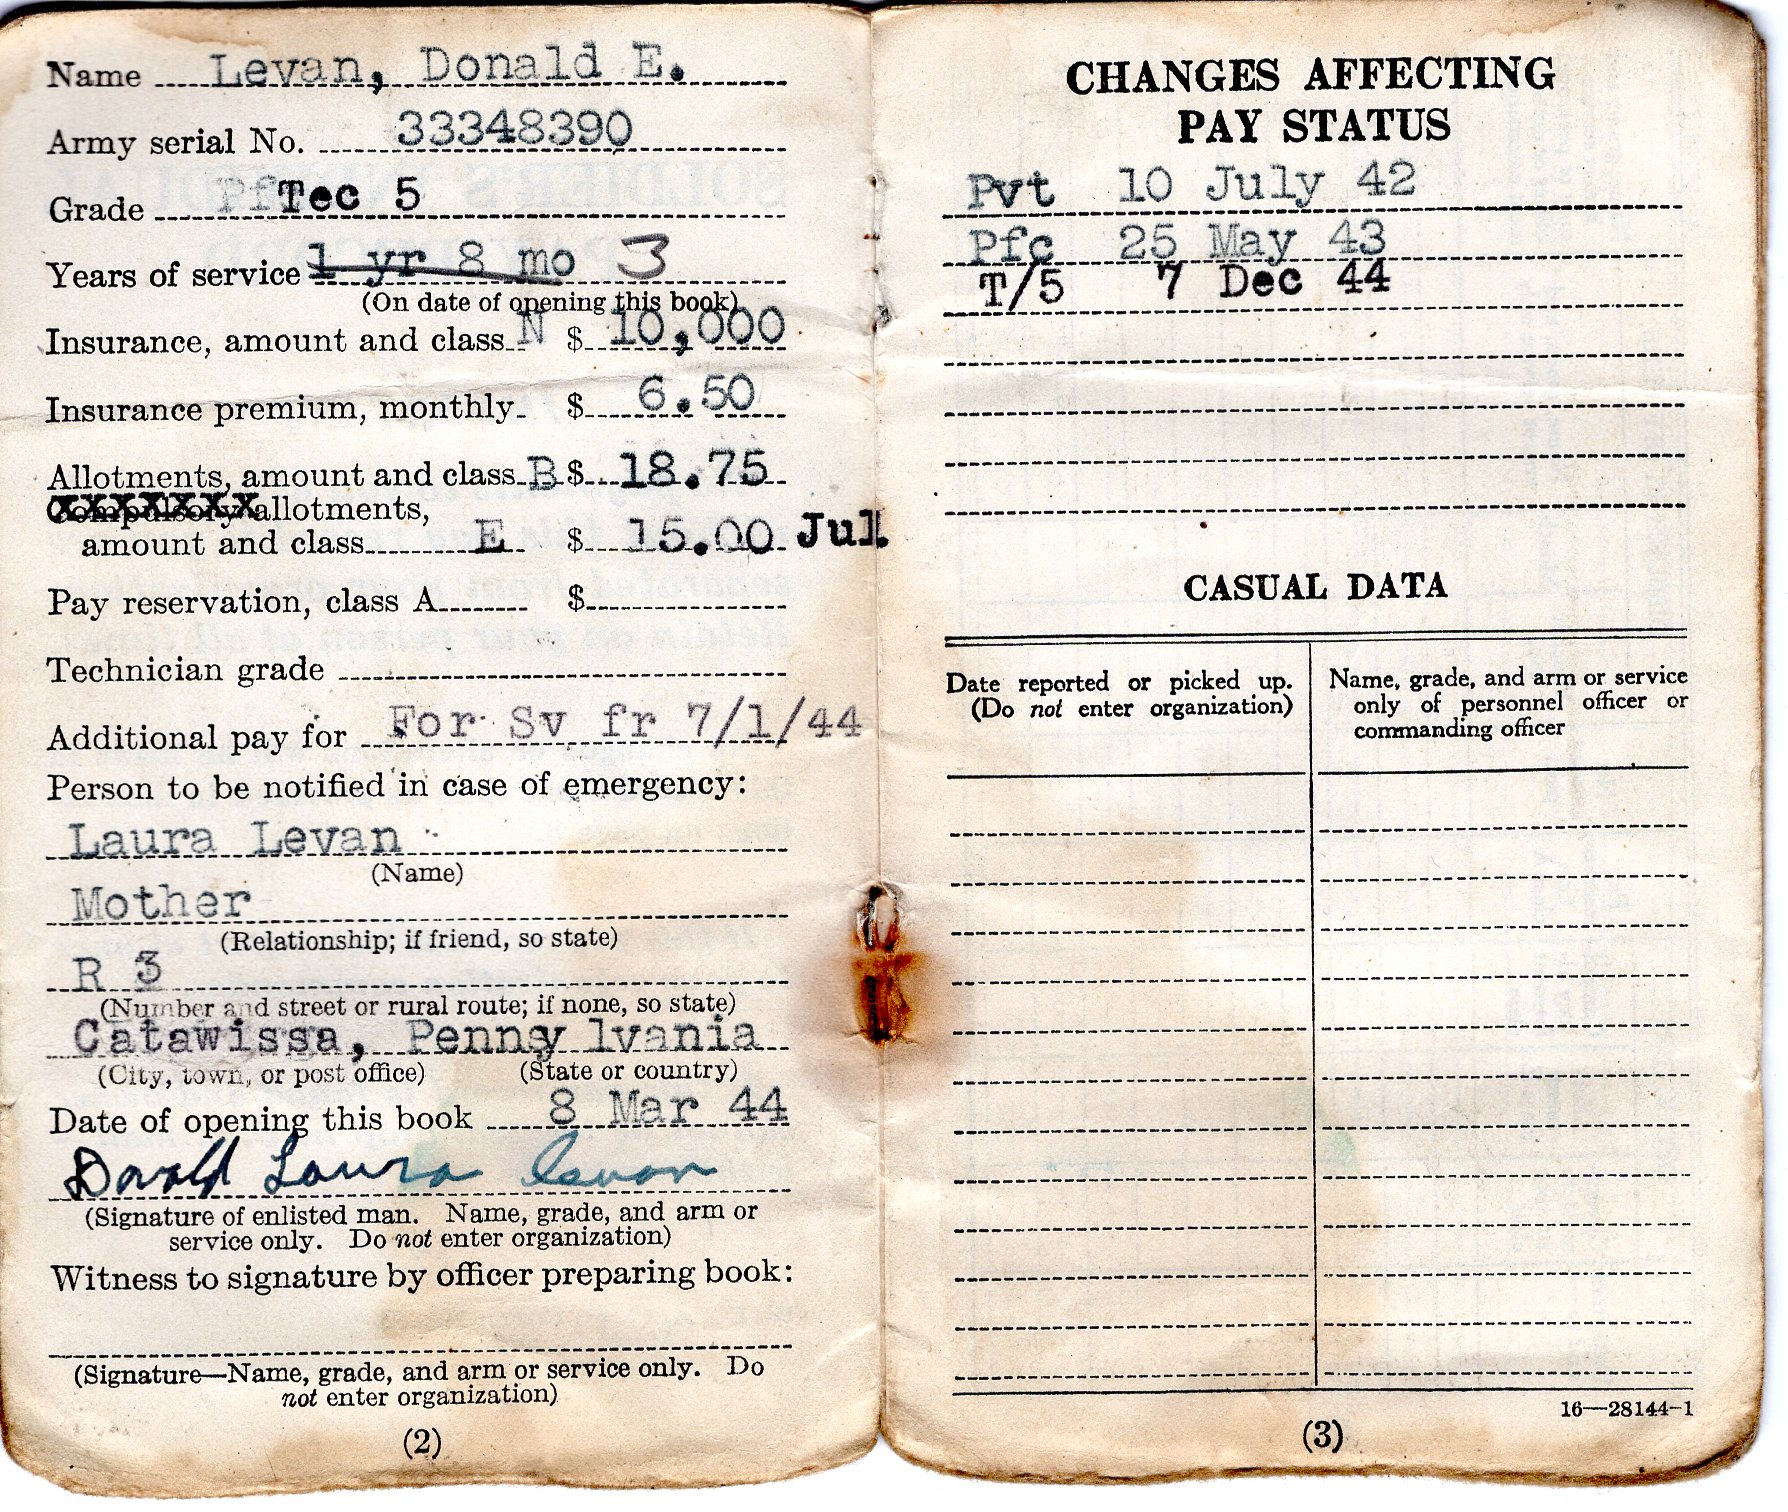 Name Levan, Donald E.
Army serial No. 33348390
Grade Pf Tec 5
Years of service 1 yr 8 mo 3
(On date of opening this book)
Insurance, amount and class N $ 10,000
Insurance premium, monthly $ 6.50
Allotments, amount and class B $ 18.75
Compulsory allotments,
amount and class E $ 15.00 Jul
Pay reservation, class A $
Technician grade
Additional pay for For Sv fr 7/1/44
Person to be notified in case of emergency:
Laura Levan
(Name)
Mother
(Relationship; if friend, so state)
R 3
(Number and street or rural route; if none, so state)
Catawissa, Pennsy lvania
(City, town, or post office) (State or country)
Date of opening this book 8 Mar 44
Donald Laura Levan
(Signature of enlisted man. Name, grade, and arm or
service only. Do not enter organization)
Witness to signature by officer preparing book:
(Signature—Name, grade, and arm or service only. Do
not enter organization)
(2)
CHANGES AFFECTING
PAY STATUS
Pvt 10 July 42
Pfc 25 May 43
T/5 7 Dec 44
CASUAL DATA
Date reported or picked up.
(Do not enter organization)
Name, grade, and arm or service
only of personnel officer or
commanding officer
16—28144-1
(3)